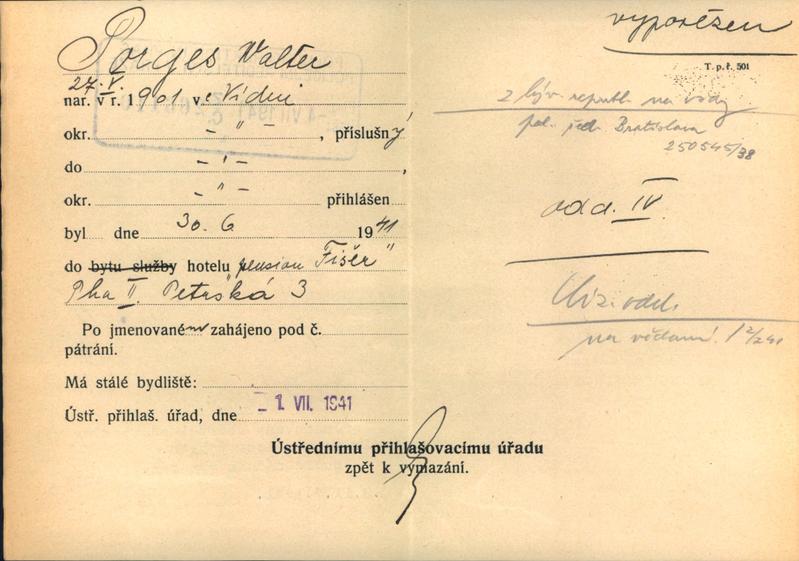 vypovězen
T. p. ř. 501
Porges Walter
27. V.
nar. v r. 1901 ve Vídni
okr. - " - , příslušný
do - " - ,
okr. - " - přihlášen
byl dne 30. 6. 1941
do bytu služby hotelu pension "Fišer"
Pha II. Petrská 3
Po jmenovaném zahájeno pod č.
pátrání.
Má stálé bydliště:
Ústř. přihlaš. úřad, dne 1. VII. 1941
Ústřednímu přihlašovacímu úřadu
zpět k vymazání.
z býv. republ. na vždy
pol. řed. Bratislava
250545/38
odd. IV.
Ciz. odd.
na vědomí.